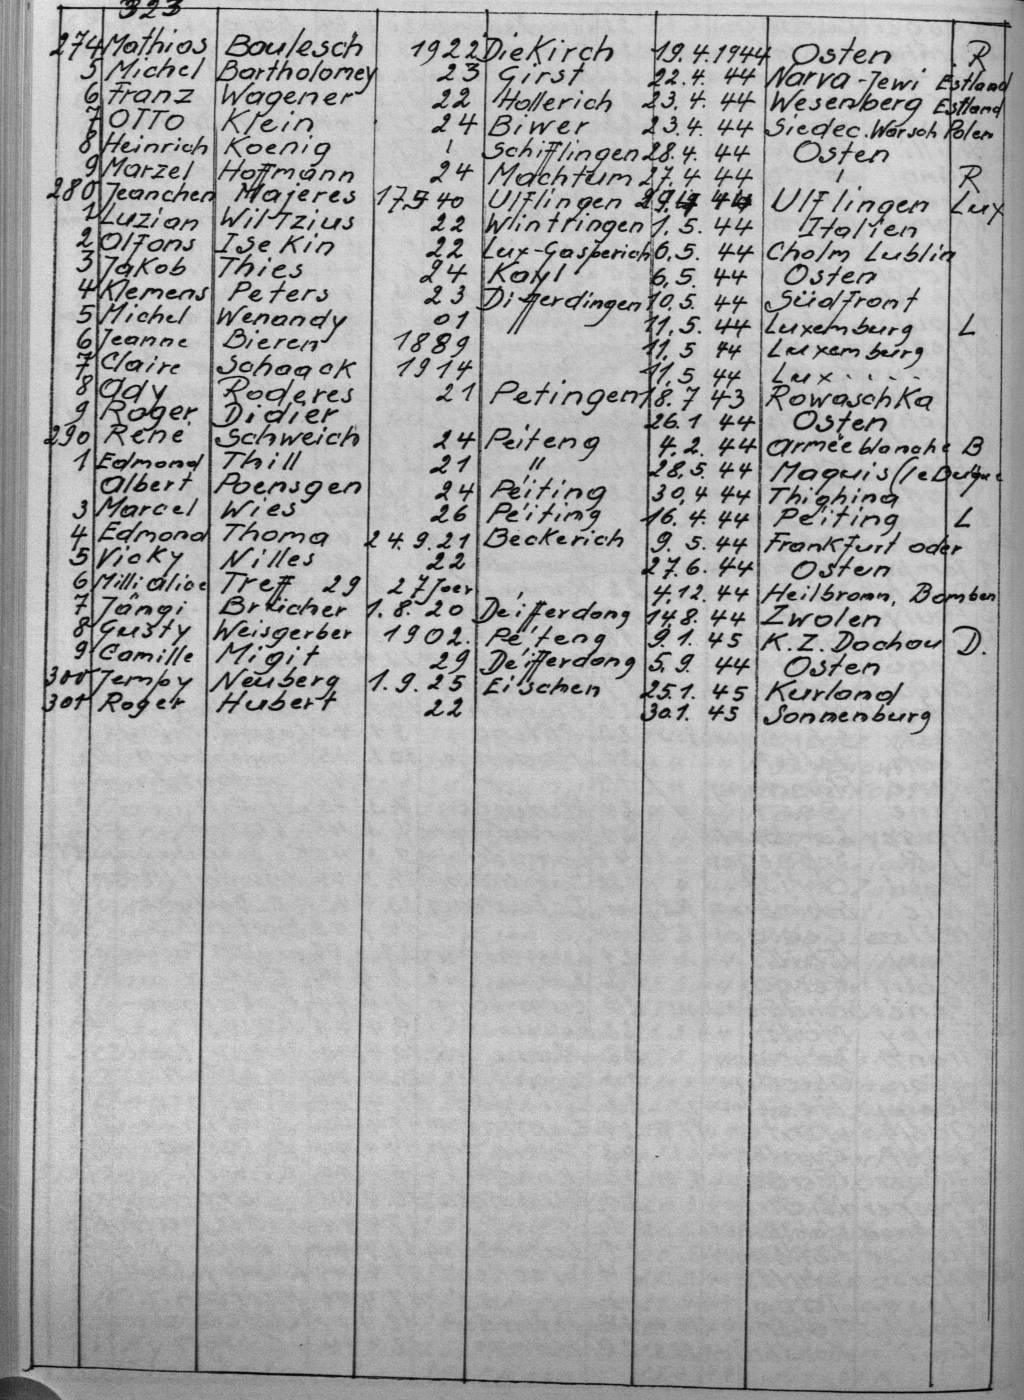 323
274 Mathias Boulesch 1922 Diekirch 19.4.1944 Osten R
5 Michel Bartholomey 23 Girst 22.4. 44 Narva-Jewi Estland
6 Franz Wagener 22 Hollerich 23.4. 44 Wesenberg Estland
7 OTTO Klein 24 Biwer 23.4. 44 Siedec. Warsch Polen
8 Heinrich Koenig ' Schifflingen 28.4. 44 Osten
9 Marzel Hoffmann 24 Machtum 27.4 44 ' R
280 Jeanchen Majeres 17.5 40 Ulflingen 44 Ulflingen Lux
1 Luzian Wiltzius 22 Wintringen 1.5. 44 Italien
2 Olfons Isekin 22 Lux-Gasperich 6.5. 44 Cholm Lublin
3 Jakob Thies 24 Kayl 6.5. 44 Osten
4 Klemens Peters 23 Differdingen 10.5. 44 Südfront
5 Michel Wenandy 01 11.5. 44 Luxemburg L
6 Jeanne Bieren 1889 11.5 44 Luxemburg
7 Claire Schaack 1914 11.5 44 Lux.....
8 Ady Roderes 21 Petingen 18.7 43 Rowaschka
9 Roger Didier 26.1 44 Osten
290 René Schweich 24 Péiteng 4.2. 44 Armée blanche B
1 Edmond Thill 21 " 28.5. 44 Maquis
Albert Poensgen 24 Péiting 30.4 44 Thighina
3 Marcel Wies 26 Péiting 16.4. 44 Péiting L
4 Edmond Thoma 24.9.21 Beckerich 9.5.44 Frankfurt oder
5 Vicky Nilles 22 27.6.44 Osten
6 Milli Alice Treff 29 27 Joer 4.12.44 Heilbronn, Bomben
7 Jängi Brücher 1.8.20 Déifferdang 14.8. 44 Zwolen
8 Gusty Weisgerber 1902. Péiteng 9.1. 45 K.Z. Dachau D.
9 Camille Migit 29 Déifferdang 5.9. 44 Osten
300 Jempy Neuberg 1.9.25 Eischen 25.1. 45 Kurland
301 Roger Hubert 22 30.1. 45 Sonnenburg